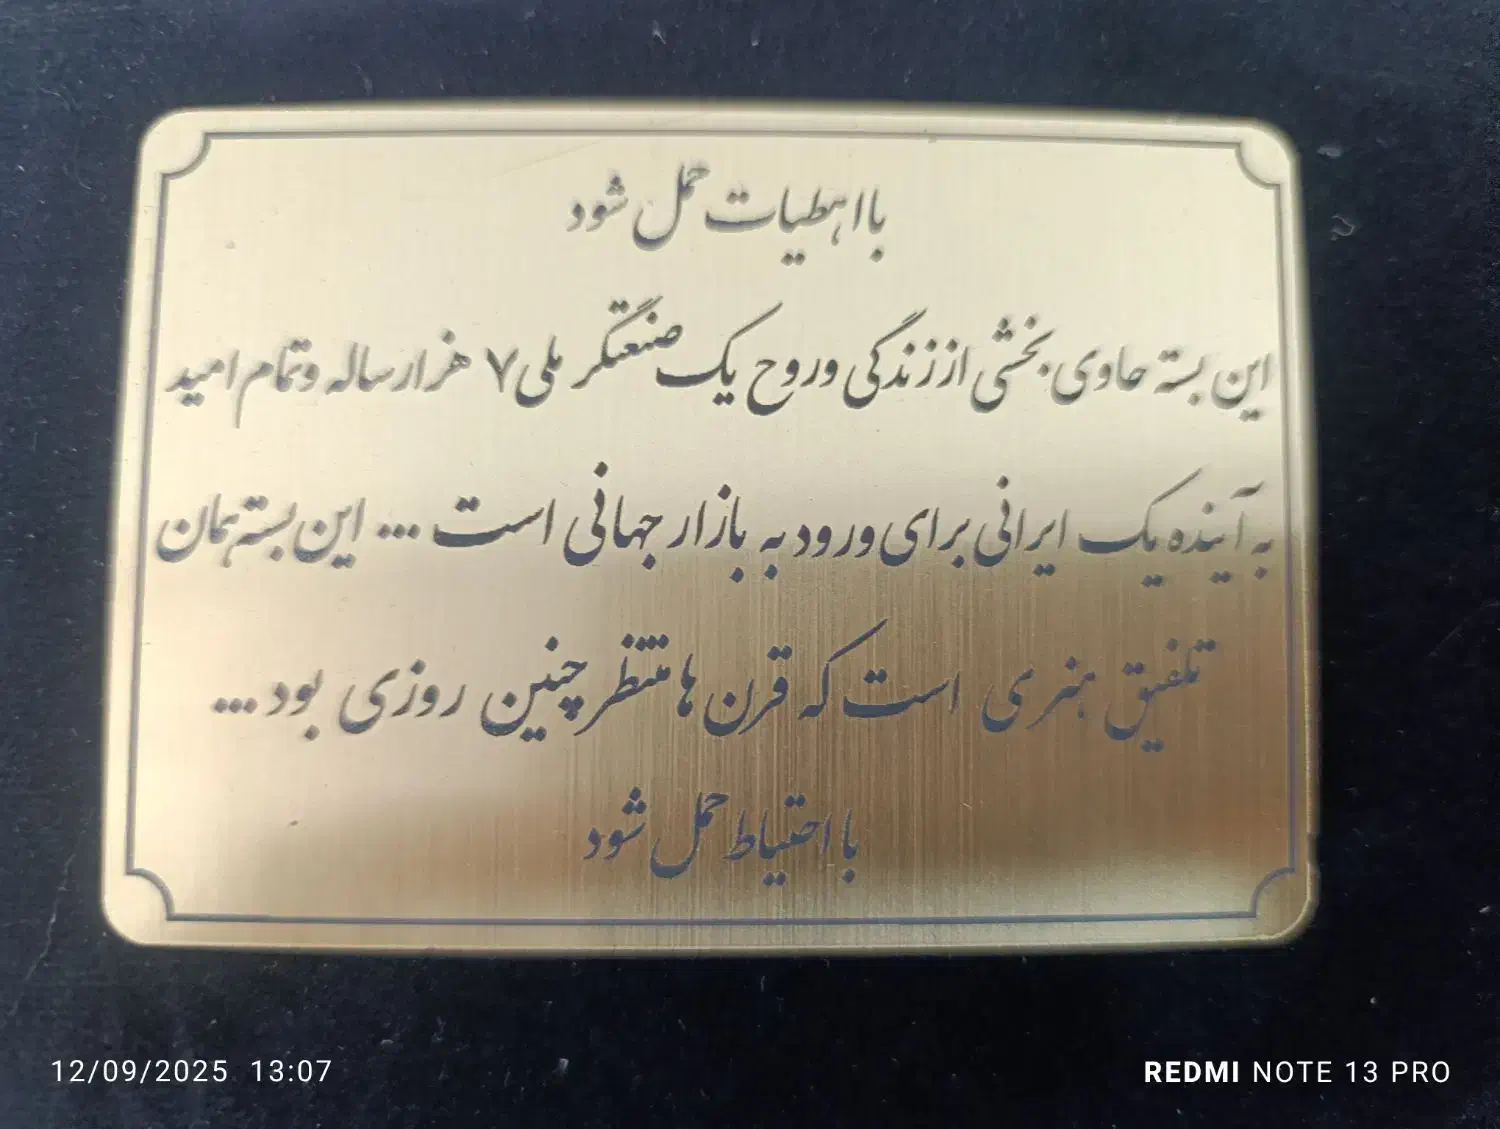 با اهطیات حمل شود
این بسته حاوی بخشی از زندگی و روح یک صنعتگر ملی ۷ هزار ساله و تمام امید
به آینده یک ایرانی برای ورود به بازار جهانی است ... این بسته همان
تلفیق هنری است که قرن ها منتظر چنین روزی بود ...
با احتیاط حمل شود
12/09/2025 13:07
REDMI NOTE 13 PRO